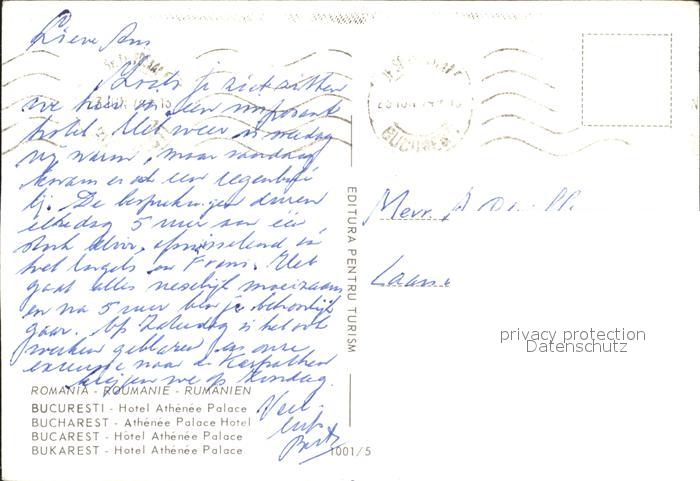 Lieve Ans
Zoals je ziet zitten
we hier in een imposant
hotel. Het weer is
vrij warm, maar vandaag
kwam er ook een regenbui
bij. De besprekingen duren
elke dag 5 uur aan één
stuk door, afwisselend in
het Engels en Frans. Het
gaat alles moeizaam
en na 5 uur ben je behoorlijk
gaar. Op Zaterdag is het ook
werken geblazen en onze
excursie naar de Karpathen
krijgen we op Zondag.
Veel
liefs
EDITURA PENTRU TURISM
Mevr. A
Laan
privacy protection
Datenschutz
ROMANIA - ROUMANIE - RUMANIEN
BUCURESTI - Hotel Athénée Palace
BUCHAREST - Athénée Palace Hotel
BUCAREST - Hôtel Athénée Palace
BUKAREST - Hotel Athénée Palace
1001/5